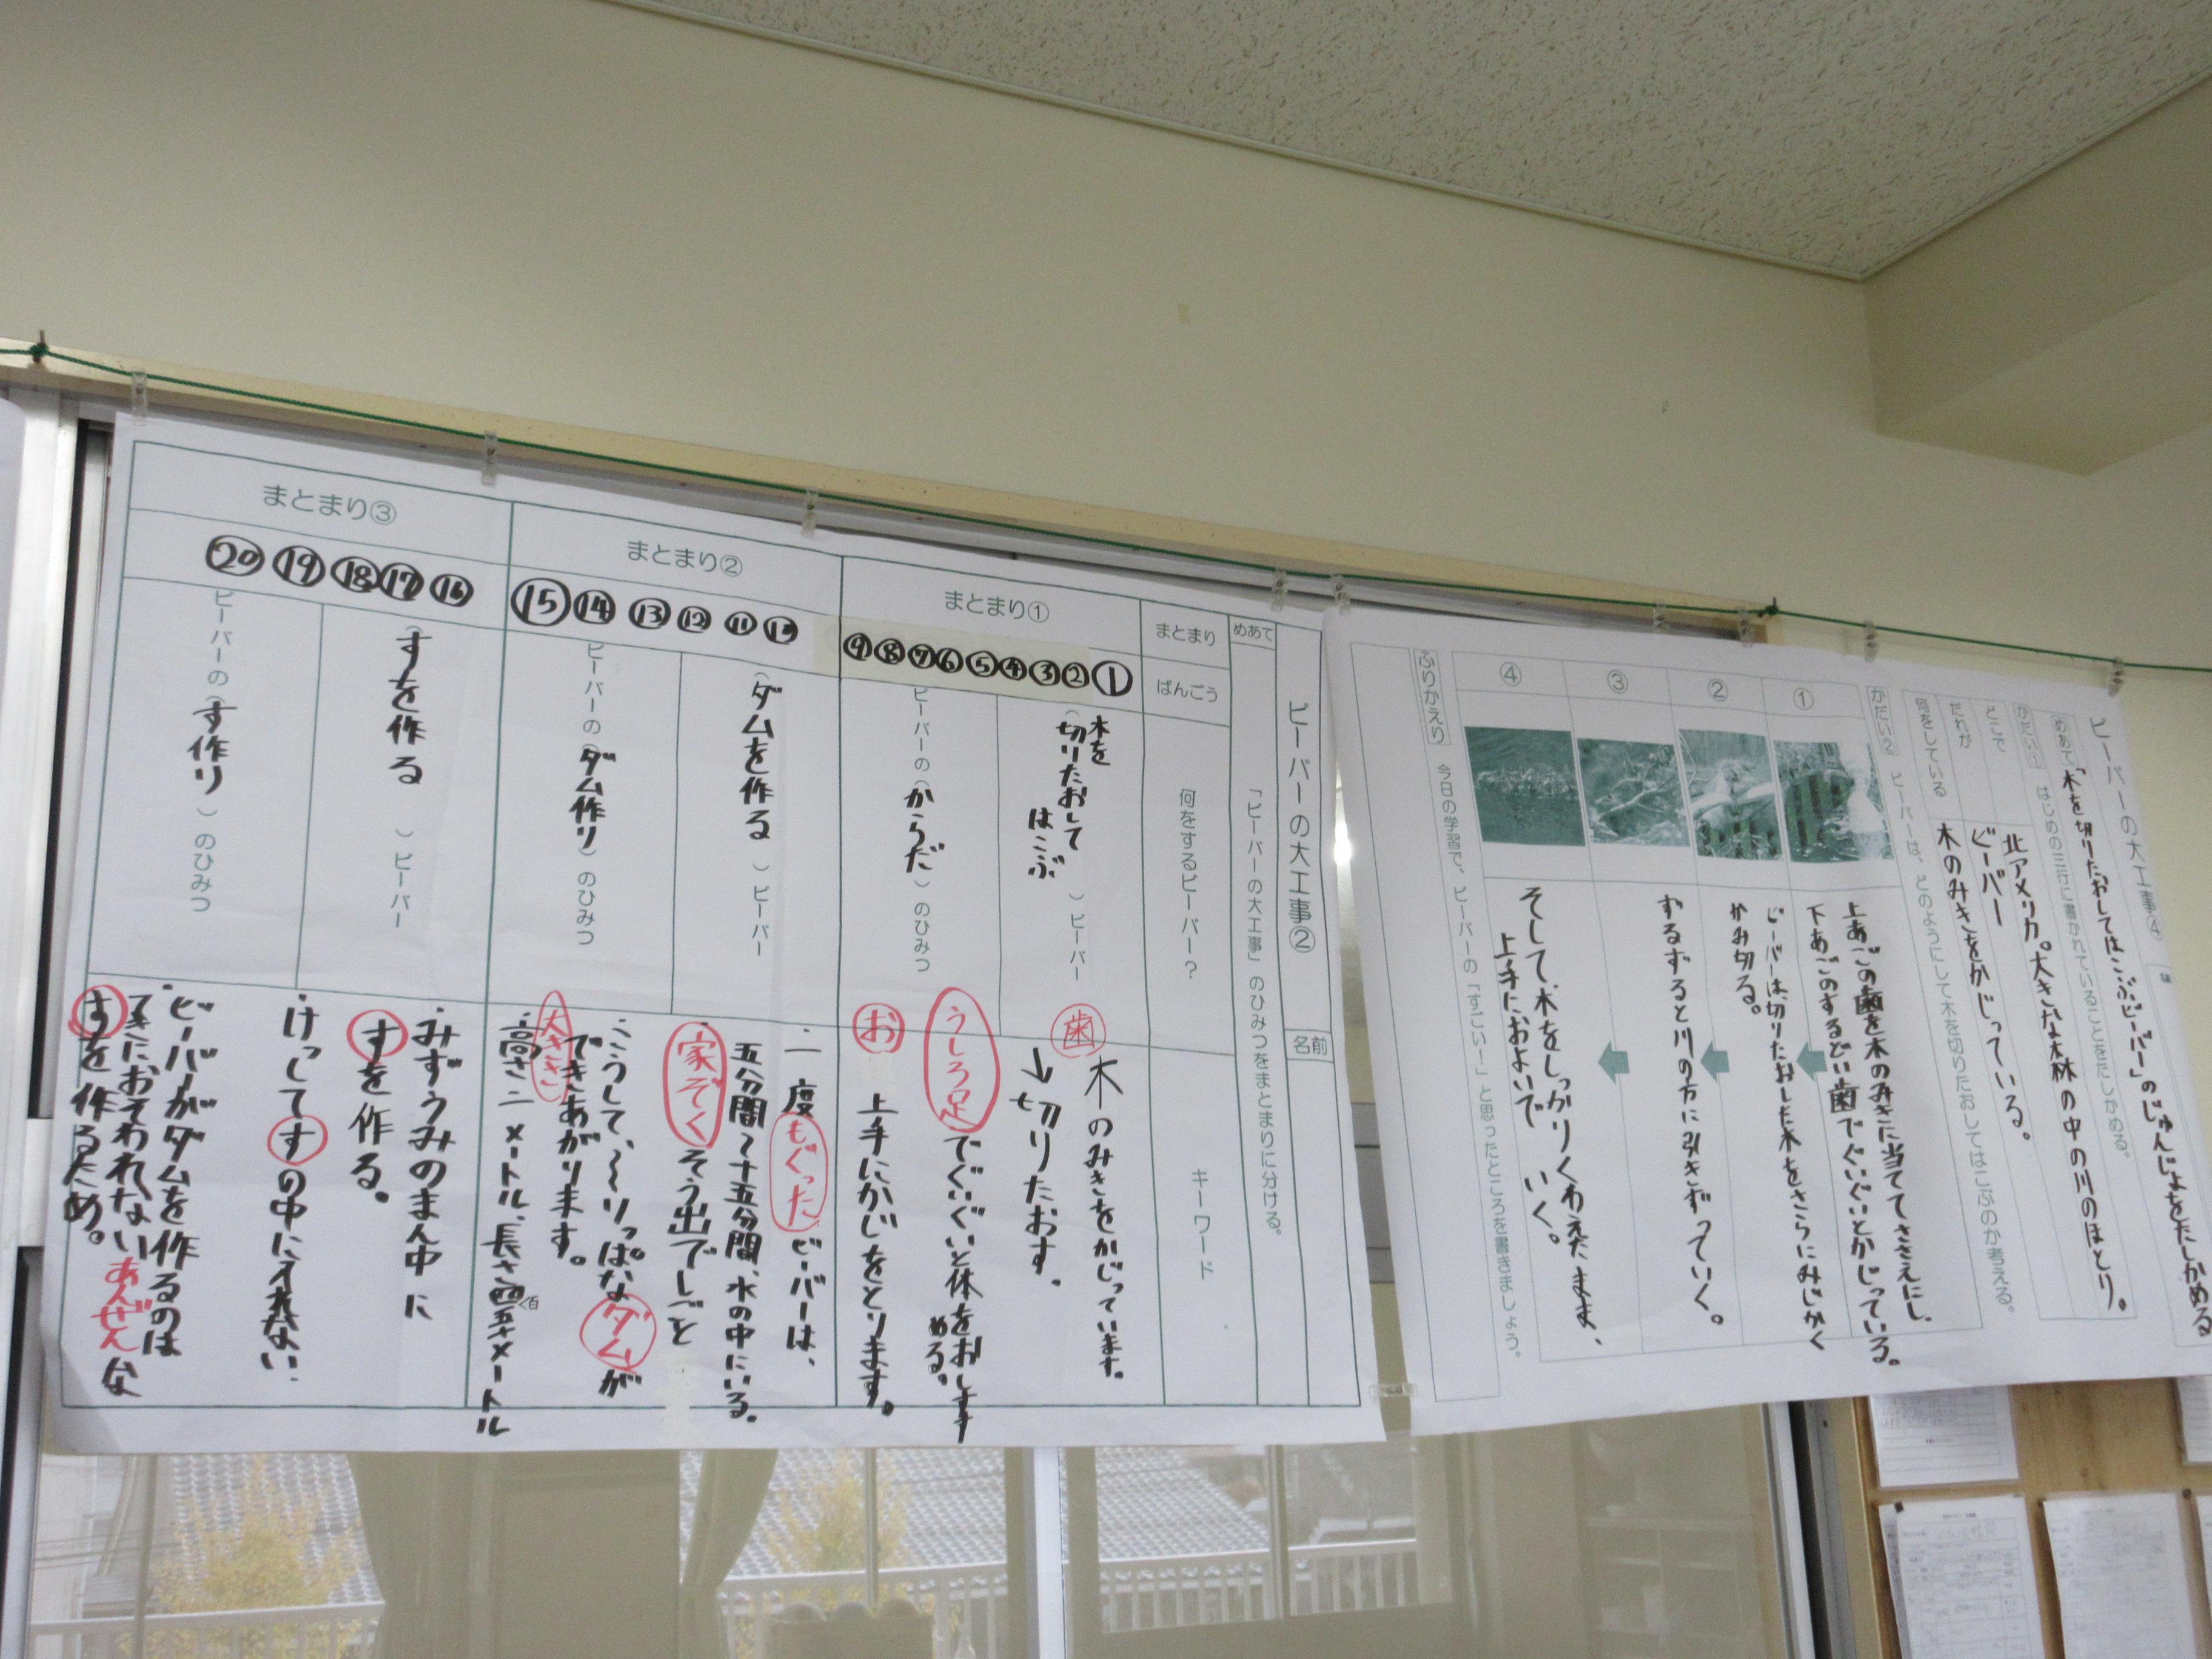 ビーバーの大工事④
めあて
「木を切りたおしてはこぶビーバー」のじゅんじょをたしかめる
かだい①
はじめの三行に書かれていることをたしかめる。
どこで
北アメリカ。大きな森の中の川のほとり。
だれが
ビーバー
何をしている
木のみきをかじっている。
かだい②
ビーバーは、どのようにして木を切りたおしてはこぶのか考える。
①
上あごの歯を木のみきに当ててささえにし、
下あごのするどい歯でぐいぐいとかじっている。
②
ビーバーは、切りたおした木をさらにみじかく
かみ切る。
③
ずるずると川の方に引きずっていく。
④
そして、木をしっかりくわえたまま、
上手におよいで いく。
ふりかえり
今日の学習で、ビーバーの「すごい!」と思ったところを書きましょう。
ビーバーの大工事②
名前
めあて
「ビーバーの大工事」のひみつをまとまりに分ける。
まとまり
ばんごう
何をするビーバー?
キーワード
まとまり①
①②③④⑤⑥⑦⑧⑨
(木を
切りたおして
はこぶ
)ビーバー
ビーバーの(からだ)のひみつ
歯
木のみきをかじっています。
→切りたおす。
うしろ足でぐいぐいと体をおしすすめる。
お 上手にかじをとります。
まとまり②
⑩⑪⑫⑬⑭⑮
(ダムを作る)ビーバー
ビーバーの(ダム作り)のひみつ
・一度もぐったビーバーは、
五分間〜十五分間、水の中にいる。
・家ぞくそう出でしごと
・こうして、〜りっぱなダムが
できあがります。
大きさ
・高さ二メートル、長さ四百五十メートル
まとまり③
⑯⑰⑱⑲⑳
(すを作る)ビーバー
ビーバーの(す作り)のひみつ
・みずうみのまん中に
すを作る。
・けっしてすの中に入れない
・ビーバーがダムを作るのは
てきにおそわれないあんぜんな
すを作るため。